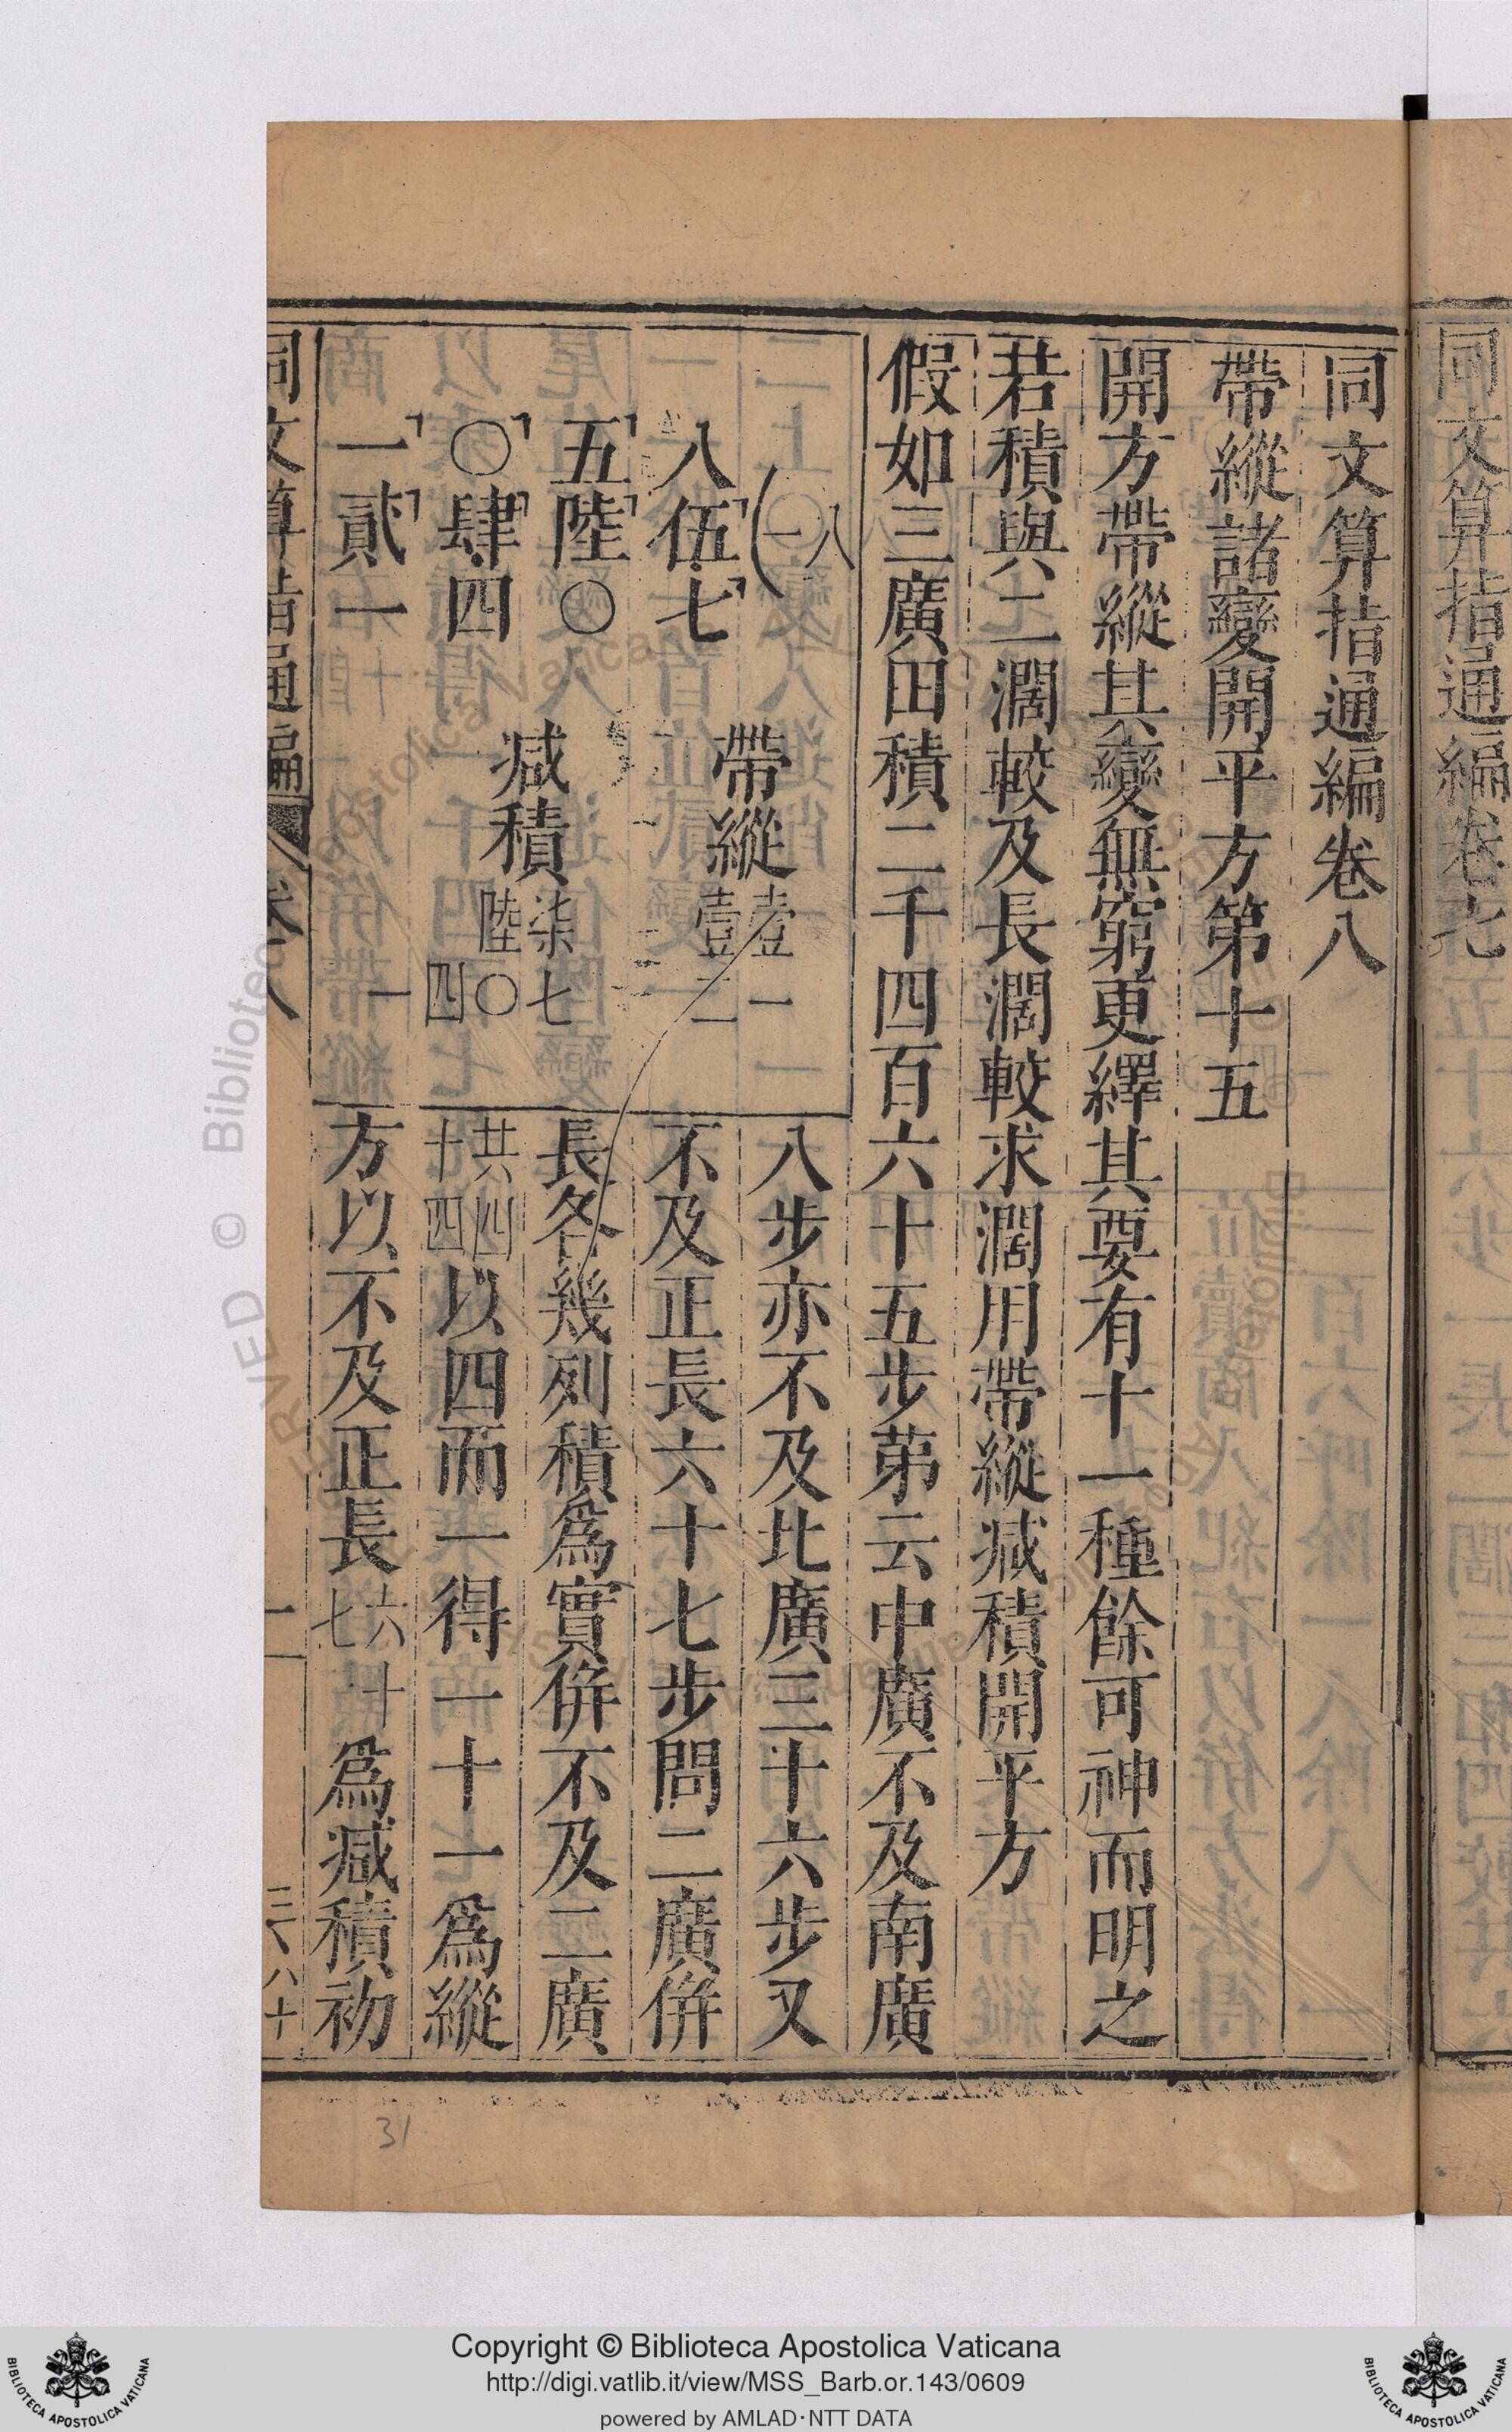 同文算指通編卷八
帶縱諸變開平方第十五
開方帶縱其變無窮更繹其要有十一種餘可神而明之
若積與二濶較及長濶較求濶用帶縱减積開平方
假如三廣田積二千四百六十五步苐云中廣不及南廣
八步亦不及北廣三十六步又
不及正長六十七步問二廣併
長各幾列積爲實併不及二廣
共四十四以四而一得一十一爲縱
方以不及正長六十七爲减積初
八
一
八伍七
五陸〇
〇肆四
一貳一
帶縱
壹一
壹二
减積
柒七
陸〇
四
一
同文算指通編
卷八
一
三八十
31
同文算指通編卷七
Copyright © Biblioteca Apostolica Vaticana
http://digi.vatlib.it/view/MSS_Barb.or.143/0609
powered by AMLAD·NTT DATA
BIBLIOTECA APOSTOLICA VATICANA
BIBLIOTECA APOSTOLICA VATICANA